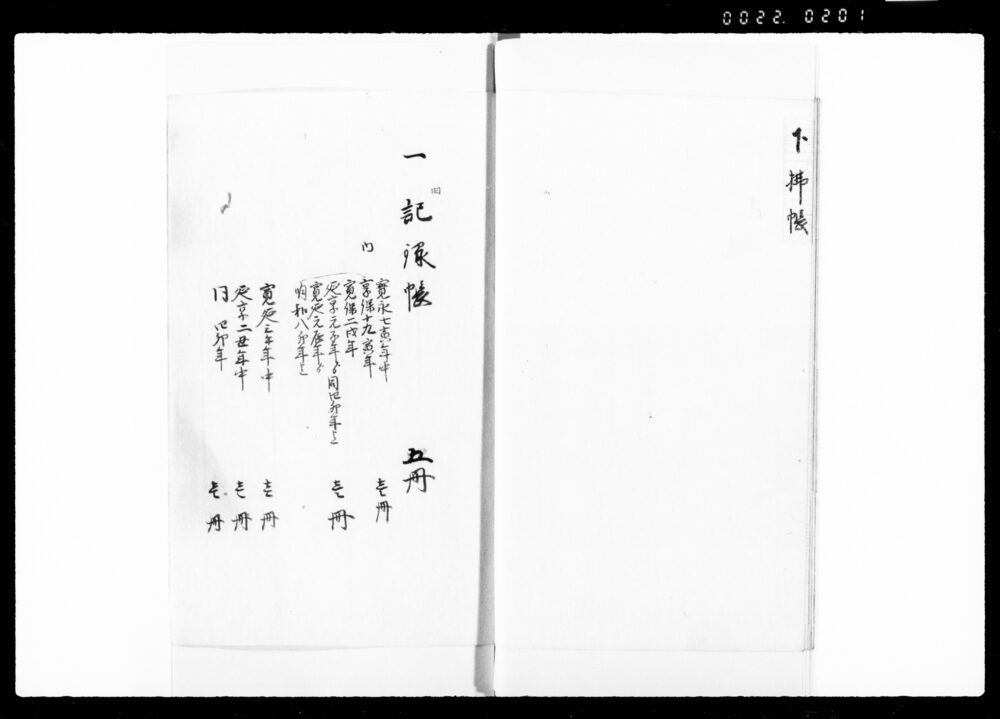 0022. 0201
下ケ
拂帳
一 記録帳 五冊
旧
内
寛永七寅年中 壱冊
享保十九寅年
寛保二戌年
延享元子年ゟ同四卯年迄 壱冊
寛延元辰年ゟ
明和八卯年迄
寛延三午年中 壱冊
延享二丑年中 壱冊
同 四卯年 壱冊